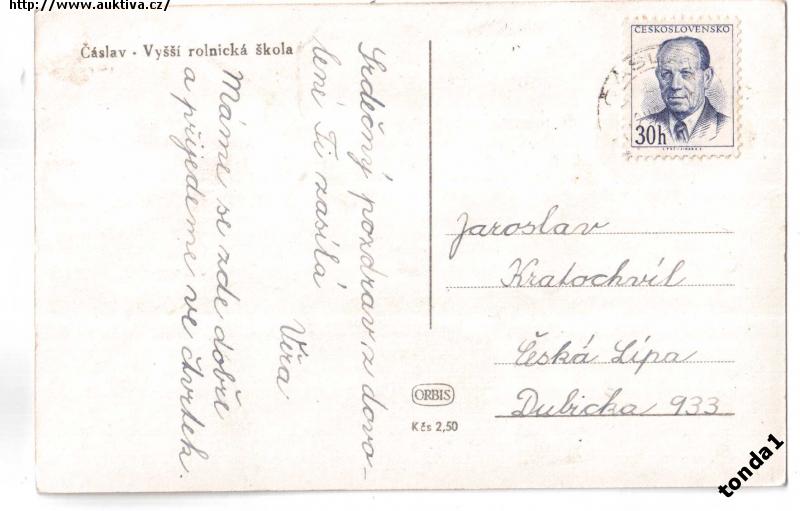 http://www.auktiva.cz/
Čáslav - Vyšší rolnická škola
Srdečný pozdrav z dovo-
lené Ti zasílá
Věra
Máme se zde dobře
a přijedeme ve čtvrtek.
ČESKOSLOVENSKO
30h
Jaroslav
Kratochvíl
Česká Lípa
Dubická 933
ORBIS
Kčs 2,50
tonda1